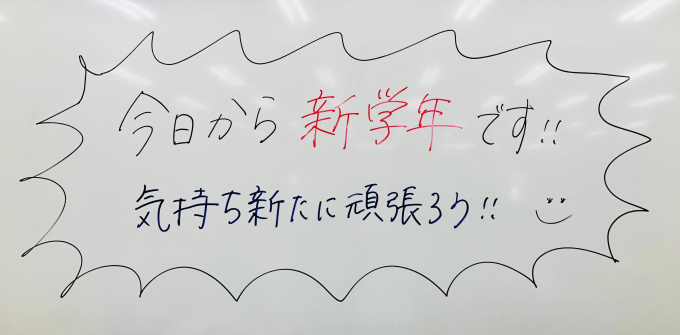 今日から新学年です!!
気持ち新たに頑張ろう!!